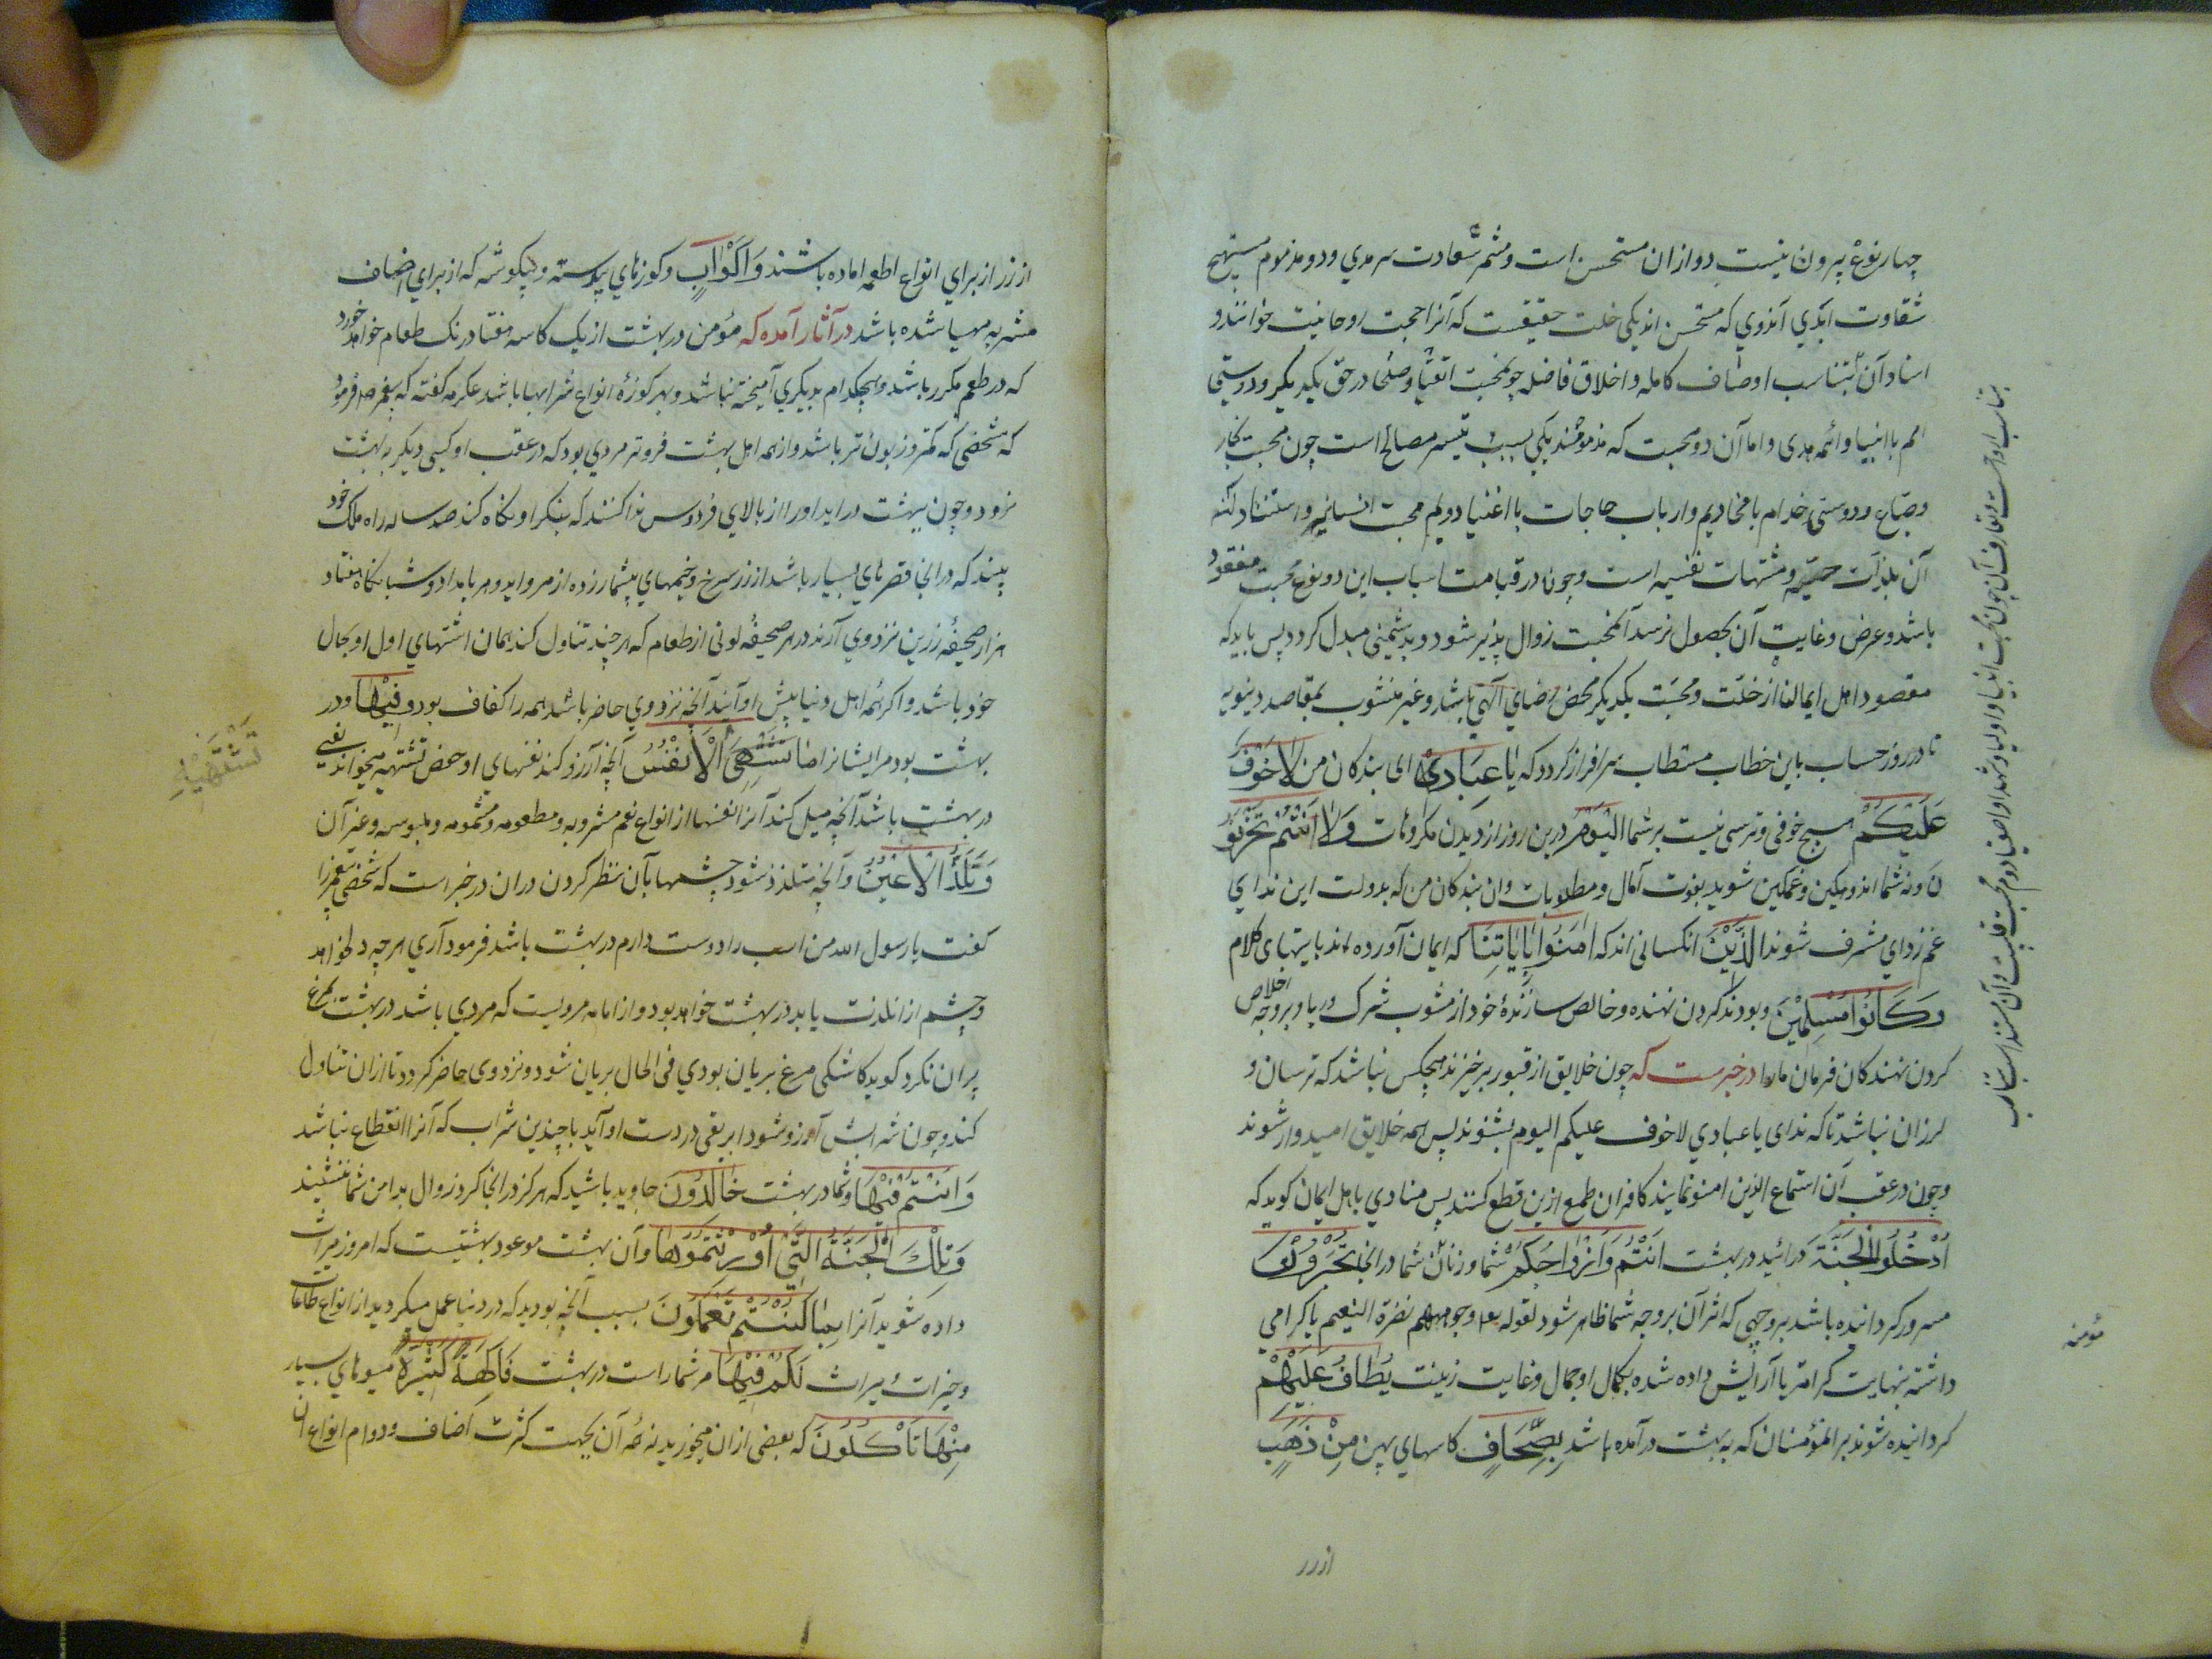 چهار نوع بیرون نیست دو ازان مستحسن است و مثمر سعادت سرمدي و دو مذموم مستهج
شقاوت ابدي آندوي که مستحسن اند یکی خلت حقیقیست که آنرا محبت روحانیت خوانند و
اسناد آن بتناسب اوصاف کامله و اخلاق فاضله چو محبت اتقیا و صلحا در حق یکدیکر و دوستی
امم با انبیا و ائمه هدی و اما آن دو محبت که مذمومند یکی بسبب تیسیر مصالح است چون محبت تجار
و صناع و دوستی خدام با مخادیم و ارباب حاجات با اغنیا دویم محبت
آن بلذات حسیّه و مشتهات نفسیه است و چون در قیامت اسباب این دو نوع محبت مفقود
باشد و غرض و غایت آن بحصول نرسد آن محبت زوال پذیر شود و بدشمنی مبدل کردد پس باید که
مقصود اهل ایمان از خلت و محبت یکدیکر محض رضاي الهي باشد و غیر منشوب بمقاصد دینویه
تا در روز حساب باین خطاب مستطاب سرافراز کردد که یَا عِبَادِیْ ای بندکان من لَا خَوْفٌ
عَلَیْکُمْ هیچ خوفی و ترسی نیست بر شما الْیَوْمَ درین روز از دیدن مکروهات وَلَا اَنْتُمْ تَحْزَنُوْ
نَ و نه شما اندوهکین و غمکین شوید بفوت آمال و مطلوبات و ان بندکان من که بدولت این ندا ي
غم زداي مشرف شوند اَلَّذِیْنَ انکسانی اند که اٰمَنُوْا بِاٰیَاتِنَا که ایمان آورده اند بایتهای کلام
وَکَانُوْا مُسْلِمِیْنَ و بودند کردن نهنده و خالص سازندهٔ خود از مشوب شرک و ریا و بر وجه اخلاص
کردن نهندکان فرمان ما را در خبرست که چون خلایق از قبور برخیزند هیچکس نباشد که ترسان و
لرزان نباشد تا که ندای یا عبادي لا خوف علیکم الیوم بشنوند پس همه خلایق امیدوار شوند
و چون در عقب آن استماع الذین امنو نمایند کافران طمع ازین قطع کنند پس منادي باهل ایمان کوید که
اُدْخُلُوا الْجَنَّةَ درائید در بهشت اَنْتُمْ وَاَزْوَاجُکُمْ شما و زنان شما در انجا تُحْبَرُوْنَ
مسرور کردانیده باشد بر وجهی که اثر آن بر وجه شما ظاهر شود لقوله تعا وجوههم نضرة النعیم یا کرامی
داشته بنهایت کرامت یا آرایش داده شده بکمال او جمال و غایت زینت یُطَافُ عَلَیْهِمْ
کردانیده شوند بر المؤمنان که به بهشت درآمده باشد بِصِحَافٍ کاسهاي پهن مِنْ ذَهَبٍ
مؤمنه
از زر
از زر از براي انواع اطعمه اماده باشند وَاَکْوَابٍ و کوزهاي که از براي اصناف
مشربه مهیا شده باشد در آثار آمده که مؤمن در بهشت از یک کاسه هفتاد رنک طعام خواهد خورد
که در طعم مکرر باشد و هیچکدام بدیکري آمیخته نباشد و بهر کوزهٔ انواع شرابها باشد عکرمه کفته که پیغمبر صلعم فرمود
که شخصی که کمتر و زبون تر باشد و از همه اهل بهشت فروتر مردي بود که در عقب او کسی دیکر به بهشت
نرود و چون ببهشت دراید اورا از بالاي فردوس ندا کنند که بنکر او نکاه کند صد ساله راه ملک خود
بیند که در انجا قصرهاي بسیار باشد از زر سرخ و خیمهاي بیشمار زده از مروارید و هر بامداد و شبانکاه هفتاد
هزار صحیفهٔ زرین نزد وي آرند در هر صحیفه لونی از طعام که هر چند تناول کند همان اشتهاي اول او بحال
خود باشد و اکر همه اهل دنیا پیش او آیند آنچه نزد وي حاضر باشد همه را کفاف بود وَفِیْهَا و در
بهشت بود مر ایشانرا مَا تَشْتَهِی الْاَنْفُسُ آنچه آرزو کند نفسهاي او حفص تشتهیه میخواند یعنی
در بهشت باشد آنچه میل کند آنرا نفسها از انواع نعم مشروبه و مطعومه و مشمومه و ملبوسه و غیر آن
وَتَلَذُّ الْاَعْیُنُ و آنچه متلذذ شود چشمها بآن نظر کردن دران در خبر است که شخصی پیغمبر را
کفت یا رسول الله من اسب را دوست دارم در بهشت باشد فرمود آري هر چه دلخواهد
و چشم ازان لذت یابد در بهشت خواهد بود و از امامه مرویست که مردي باشد در بهشت بمرغ
پران نکرد کوید کاشکی مرغ بریان بودي فی الحال بریان شود و نزد وی حاضر کردد تا ازان تناول
کند و چون شرابش آرزو شود ابریقی در دست او آید با چندین شراب که آنرا انقطاع نباشد
وَاَنْتُمْ فِیْهَا و شما در بهشت خَالِدُوْنَ جاوید باشید که هرکز در انجا کرد زوال بدامن شما ننشیند
وَتِلْكَ الْجَنَّةُ الَّتِیْ اُوْرِثْتُمُوْهَا و آن بهشت موعود بهشتیست که امروز میراث
داده شوید آنرا بِمَا کُنْتُمْ تَعْمَلُوْنَ بسبب آنچه بودید که در دنیا عمل میکردید از انواع طاعات
و خیرات میراث لَکُمْ فِیْهَا مر شماراست در بهشت فَاکِهَةٌ کَثِیْرَةٌ میوهاي بسیار
مِنْهَا تَأْکُلُوْنَ که بعضی ازان میخورید نه همه آن بجهت کثرت اضاف و دوام انواع ان
تَشْتَهِیْهِ